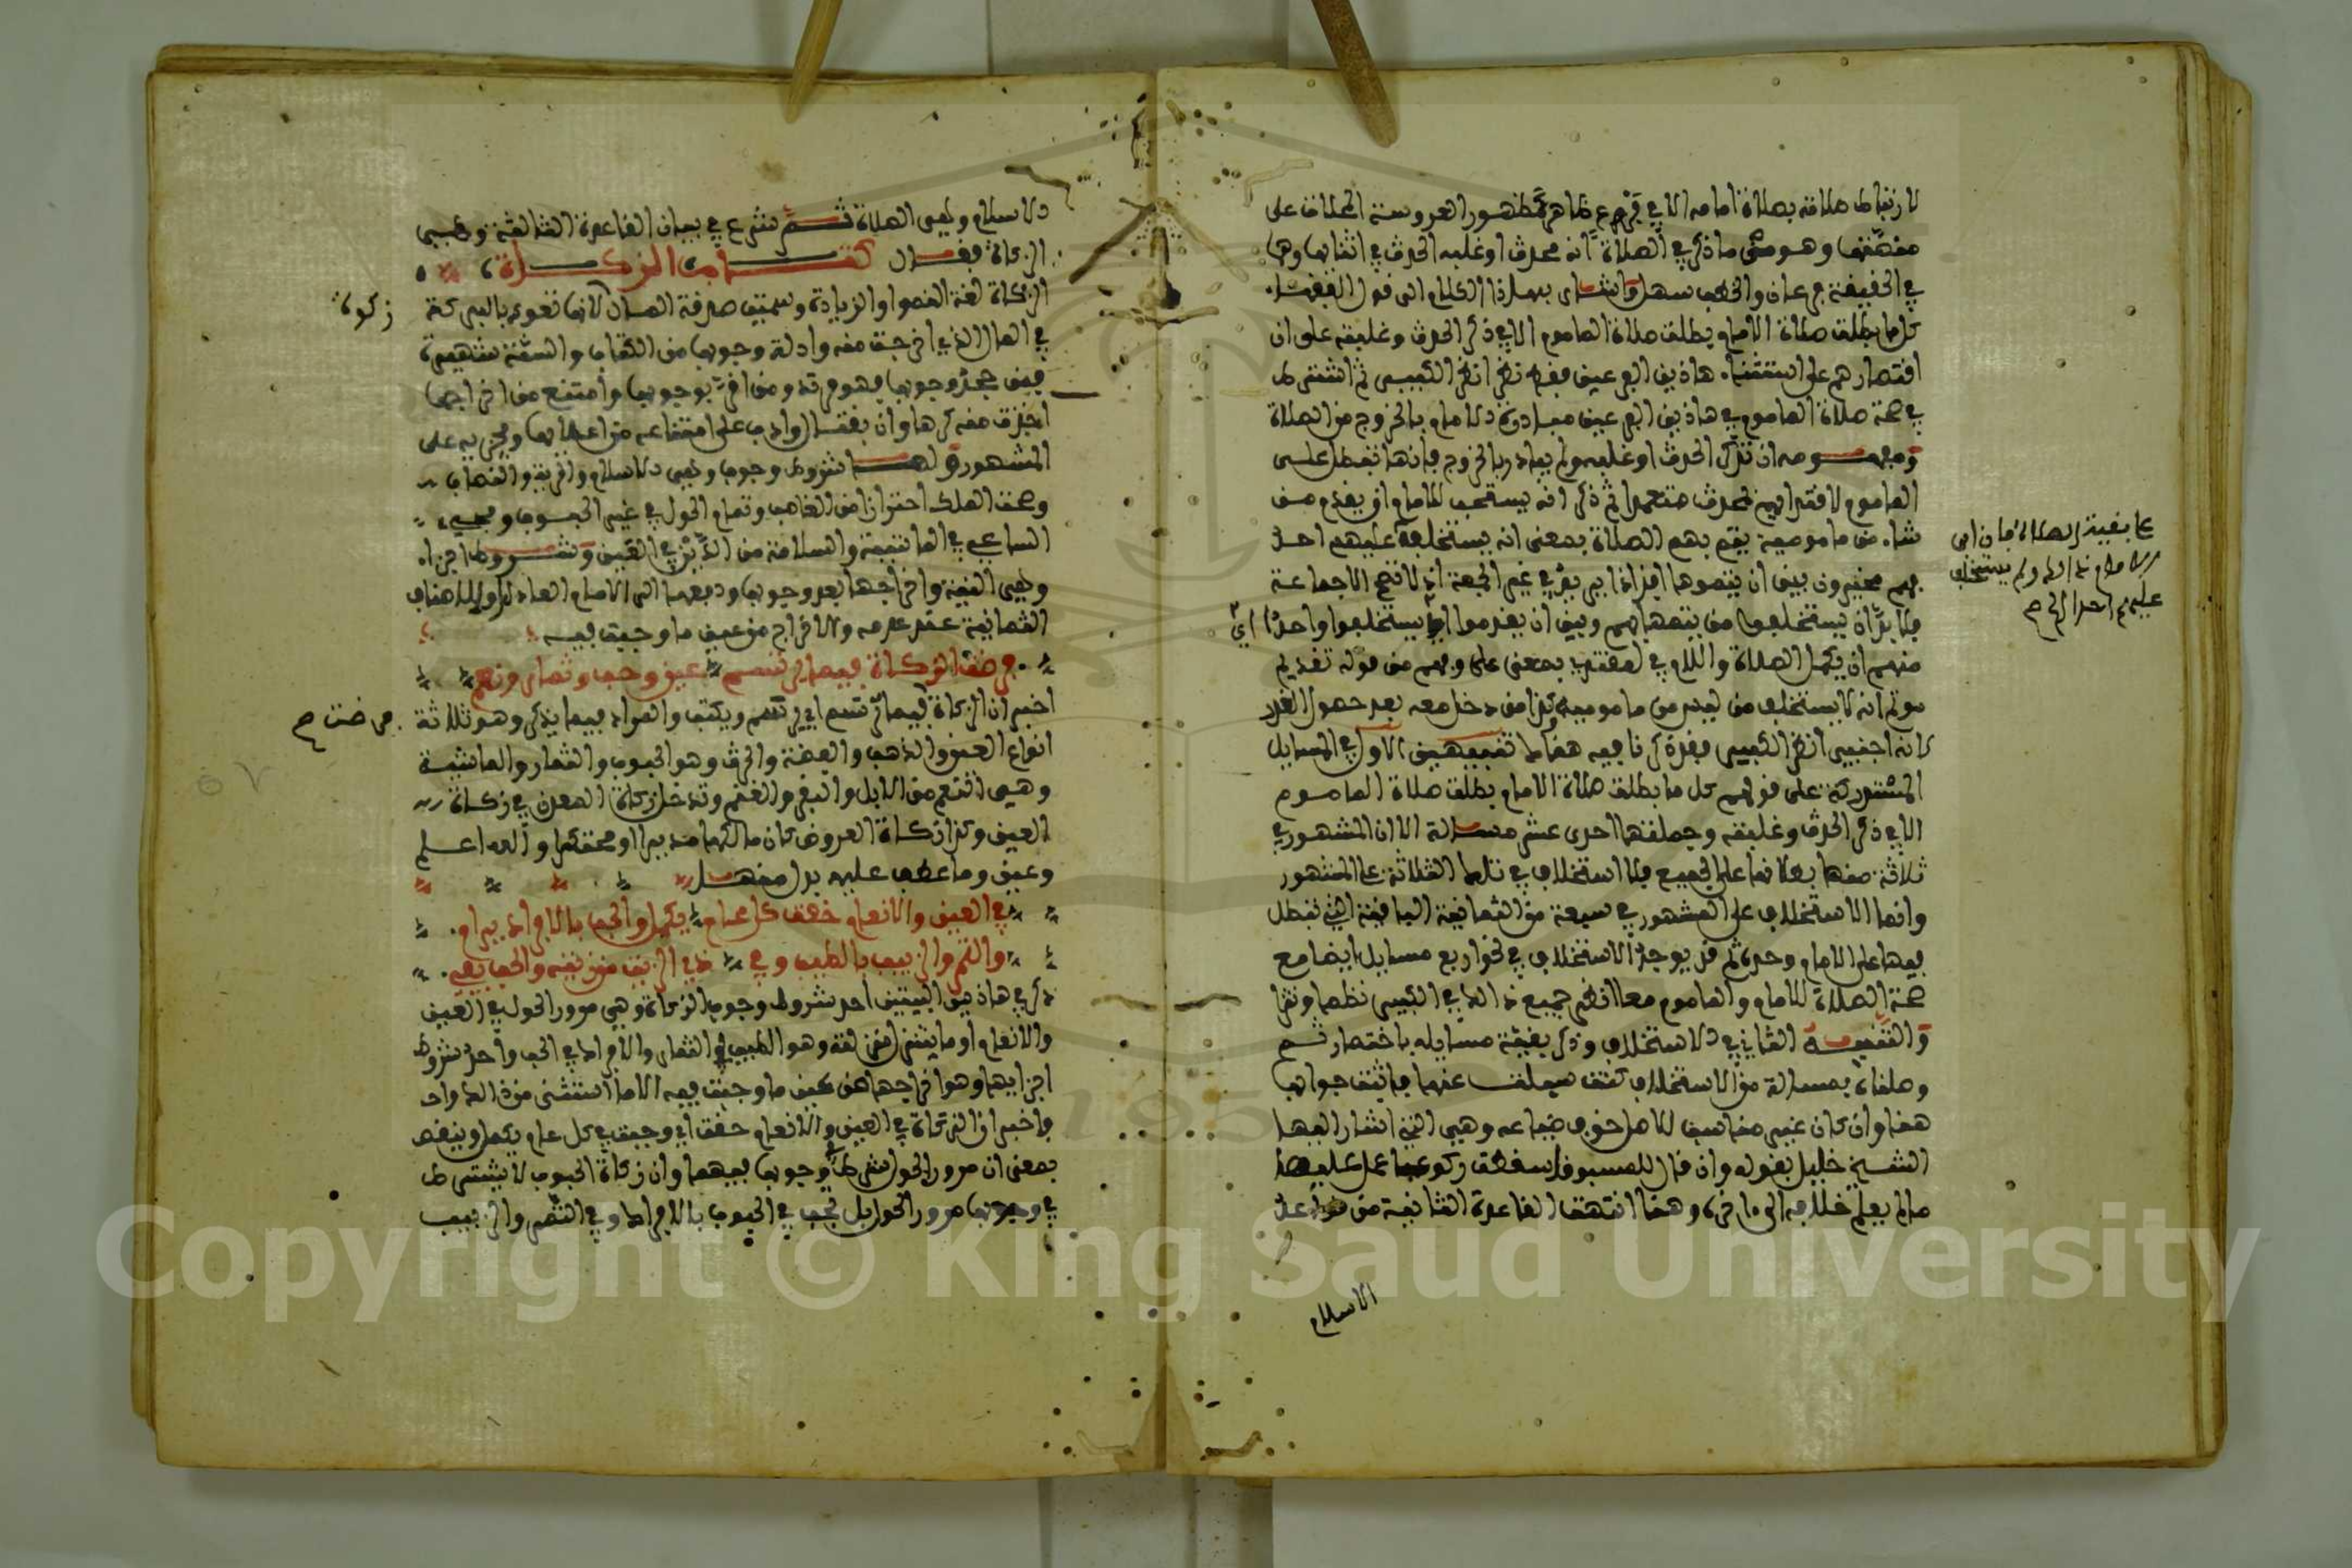 لارتباط صلاته بصلاة امامه الا في فرع ظاهر مشهور العروسة الخلاف على
منهما وهو متى ما ذكر في الصلاة انه محدث او غلبه الحدث في اثنائها وهما
في الحقيقة فرعان والخطب سهل واشار بهذا الكلام الى قول الفقهاء
كلما بطلت صلاة الامام بطلت صلاة الماموم الا في ذكر الحدث وغلبته على ان
اقتصارهم على استثناء هاذين الفرعين فيه نظر انظر الكبير ثم اشترط
في صحة صلاة الماموم في هاذين الفرعين مبادرة الامام بالخروج من الصلاة
ومفهومه ان تذكر الحدث او غلبه ولم يبادر بالخروج فانها تبطل على
الماموم لاقتدائهم بمحدث متعمدا ثم ذكر انه يستحب للامام ان يقدم من
شاء من ماموميه يتم بهم الصلاة بمعنى انه يستخلفه عليهم احد
فهم مخيرون بين ان يتموها افذاذا يريد في غير الجمعة اذ لا تصح الا جماعة
فلا بد ان يستخلفوا من يتمها بهم وبين ان يقدموا اي يستخلفوا واحدا
منهم ان يكمل الصلاة واللام في لمقتد بمعنى على وفهم من قوله تقديم
موتم انه لا يستخلف من ليس من ماموميه كذا من دخل معه بعد حصول العذر
لانه اجنبي انظر الكبير فقد ذكرنا فيه هنا تنبيهين الاول في المسايل
المستدركة على قولهم كل ما بطلت صلاة الامام بطلت صلاة الماموم
الا في ذكر الحدث وغلبته وجملتها احدى عشر مسالة الا ان المشهور في
ثلاثة منها بطلانها على الجميع فلا استخلاف في تلك الثلاثة على المشهور
وانما الاستخلاف على المشهور في سبعة من الثمانية الباقية التي تبطل
فيها على الامام وحده ثم قد يوجد الاستخلاف في نحو اربع مسايل ايضا مع
صحة الصلاة للامام والماموم معا انظر جميع ذالك في الكبير نظما ونثرا
والتنبيه الثاني في الاستخلاف وذكر بقية مسايله باختصار ثم
وصلناه بمسالة من الاستخلاف كنت سيلت عنها فاثبت جوابها
هنا وان كان غير مناسب للاصل خوف ضياعه وهي التي اشار اليها
الشيخ خليل بقوله وان قال للمسبوق اسقطت ركوعا عمل عليه من
مالم يعلم خلافه الى اخره وهنا انتهت القاعدة الثانية من قواعد
على بقية الصلاة فان ابى
الامام ذالك ولم يستخلف
عليهم احدا الخ صح
اي
الاسلام
الاسلام وهي الصلاة ثم شرع في بيان القاعدة الثالثة وهي
الزكاة فقال كتاب الزكاة
الزكاة لغة النمو والزيادة وسميت صدقة المال لانها تعود بالبركة
في المال الذي اخرجت منه وادلة وجوبها من الكتاب والسنة شهيرة
فمن جحد وجوبها فهو مرتد ومن اقر بوجوبها وامتنع من اخراجها
اخذت منه كرها وان بقتال وادب على امتناعه من اعطائها وتجزيه على
المشهور ولها شروط وجوب وهي الاسلام والحرية والنصاب
وصحة الملك احترازا من الغاصب وتمام الحول في غير الحبوب ومجيء
الساعي في الماشية والسلامة من الدين في العين وشروط اجزاء
وهي النية واخراجها بعد وجوبها ودفعها الى الامام العادل والاصناف
الثمانية عند عدمه والاخراج من عين ما وجبت فيه
فرضت الزكاة فيما يرتسم عين وحب وثمار ونعم
اخبر ان الزكاة فيما يرتسم اي يرسم ويكتب والمراد فيما يذكر وهو ثلاثة
انواع العين والذهب والفضة والحرث وهو الحبوب والثمار والماشية
وهي النعم من الابل والبقر والغنم وتدخل زكاة المعدن في زكاة
العين وكذا زكاة العروض كان مالكها مديرا او محتكرا والله اعلم
وعين وما عطف عليه بدل من ما
في العين والانعام حقت كل عام يكمل والحب بالافراك يرام
والتمر والزبيب بالطيب وفي ذي الزيت من زيته والحب يفي
ذكر في هاذين البيتين احد شروط وجوب الزكاة وهي مرور الحول في العين
والانعام او ما يتنزل منزلته وهو الطيب في الثمار والافراك في الحب واحد شروط
اجزايها وهو اخراجها من عين ما وجبت فيه الا ما استثنى من ذالك
فاخبر ان الزكاة في العين والانعام حقت اي وجبت في كل عام يكمل وينقضي
بمعنى ان مرور الحول شرط في وجوبها فيهما وان زكاة الحبوب لا يشترط
في وجوبها مرور الحول بل تجب في الحبوب بالافراك وفي التمر والزبيب
زكوة
فرضت صح
Copyright © King Saud University